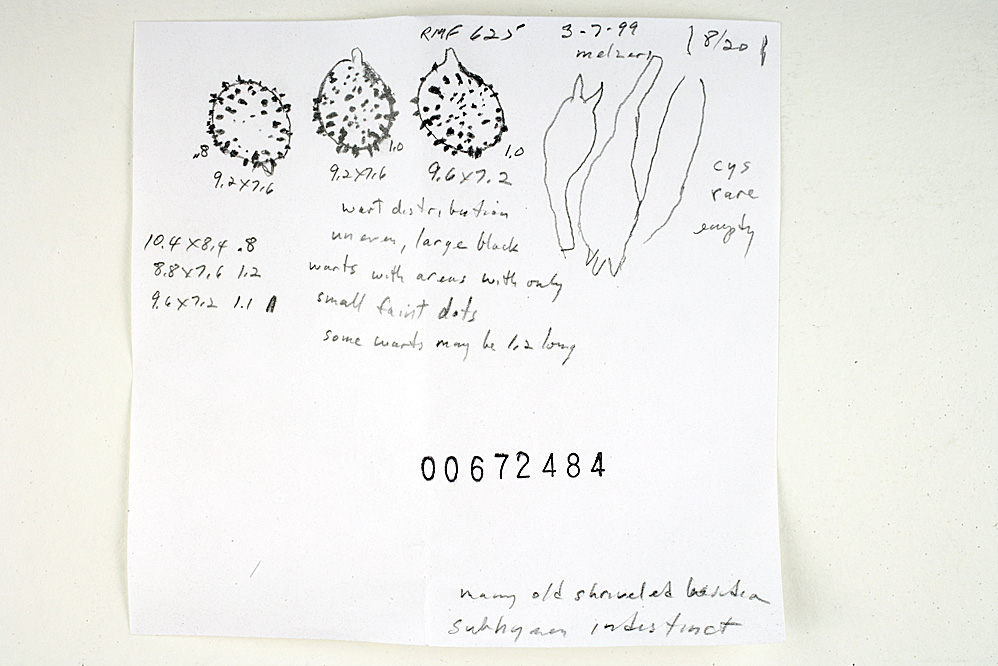 RMF 625
3-7-99
melzers
8/20
.8
9.2x7.6
1.0
9.2x7.6
1.0
9.6x7.2
cys
rare
empty
wart distribution
uneven, large black
warts with areas with only
small faint dots
some warts may be 1.2 long
10.4x8.4 .8
8.8x7.6 1.2
9.6x7.2 1.1
00672484
many old shriveled basidia
subhymen indistinct